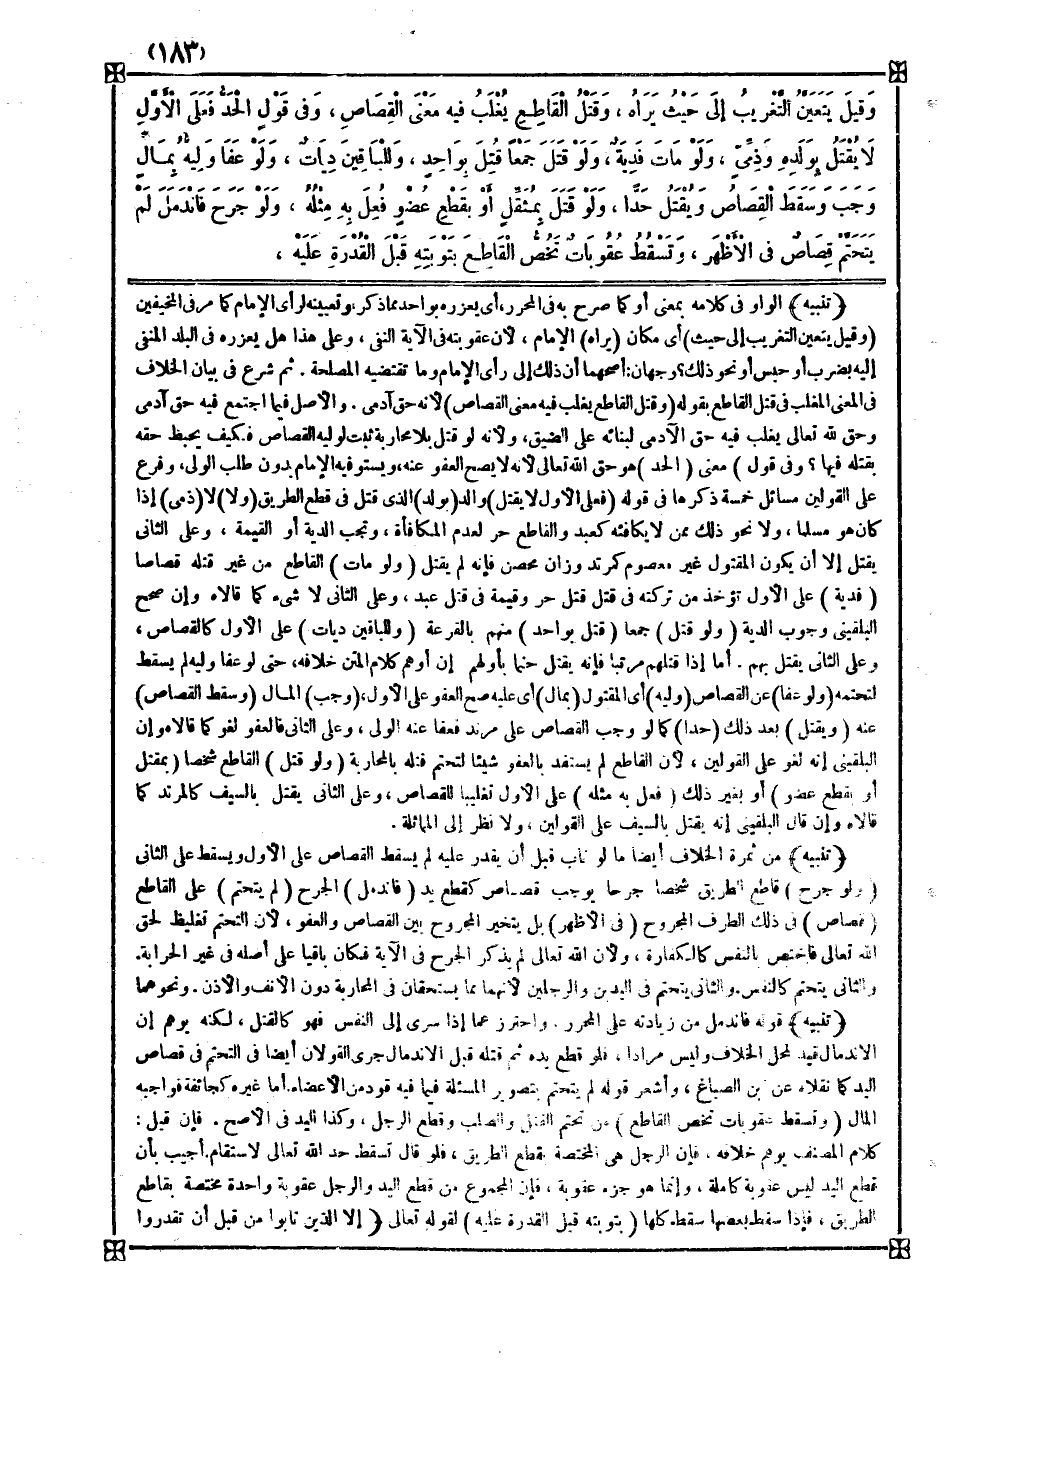 (١٨٣)
وَقِيلَ يَتَعَيَّنُ التَّغْرِيبُ إِلَى حَيْثُ يَرَاهُ ، وَقَتْلُ الْقَاطِعِ يُغَلَّبُ فِيهِ مَعْنَى الْقِصَاصِ ، وَفِى قَوْلٍ الْحَدُّ فَعَلَى الْأَوَّلِ
لَا يُقْتَلُ بِوَلَدِهِ وَذِمِّىٍّ ، وَلَوْ مَاتَ فَدِيَةٌ ، وَلَوْ قَتَلَ جَمْعًا قُتِلَ بِوَاحِدٍ ، وَلِلْبَاقِينَ دِيَاتٌ ، وَلَوْ عَفَا وَلِيُّهُ بِمَالٍ
وَجَبَ وَسَقَطَ الْقِصَاصُ وَيُقْتَلُ حَدًّا ، وَلَوْ قَتَلَ بِمُثَقَّلٍ أَوْ بِقَطْعِ عُضْوٍ فُعِلَ بِهِ مِثْلُهُ ، وَلَوْ جَرَحَ فَانْدَمَلَ لَمْ
يَتَحَتَّمْ قِصَاصٌ فِى الْأَظْهَرِ ، وَتَسْقُطُ عُقُوبَاتٌ تَخُصُّ الْقَاطِعَ بِتَوْبَتِهِ قَبْلَ الْقُدْرَةِ عَلَيْهِ ،
( تنبيه ) الواو فى كلامه بمعنى أو كما صرح به فى المحرر، أى يعزره بواحد مما ذكر، وتعيينه لرأى الإمام كما مر فى المخيفين
(وقيل يتعين التغريب إلى حيث) أى مكان (يراه) الإمام ، لأن عقوبته فى الآية النفى ، وعلى هذا هل يعزره فى البلد المنفى
إليه بضرب أو حبس أو نحو ذلك؟ وجهان: أصحهما أن ذلك إلى رأى الإمام وما تقتضيه المصلحة . ثم شرع فى بيان الخلاف
فى المعنى المغلب فى قتل القاطع بقوله (وقتل القاطع يغلب فيه معنى القصاص) لأنه حق آدمى . والأصل فيما اجتمع فيه حق آدمى
وحق لله تعالى يغلب فيه حق الآدمى لبنائه على الضيق، ولأنه لو قتل بلا محاربة ثبت لوليه القصاص فكيف يحبط حقه
بقتله فيها ؟ وفى قول ) معنى ( الحد ) هو حق الله تعالى لأنه لا يصح العفو عنه، ويستوفيه الإمام بدون طلب الولى، وفرع
على القولين مسائل خمسة ذكرها فى قوله (فعلى الأول لا يقتل) والد (بولد) الذى قتل فى قطع الطريق (ولا) لا (ذمى) إذا
كان هو مسلما ، ولا نحو ذلك ممن لا يكافئه كعبد والقاطع حر لعدم المكافأة ، وتجب الدية أو القيمة ، وعلى الثانى
يقتل إلا أن يكون المقتول غير معصوم كمرتد وزان محصن فإنه لم يقتل ( ولو مات ) القاطع من غير قتله قصاصا
( فدية ) على الأول تؤخذ من تركته فى قتل قتل حر وقيمة فى قتل عبد ، وعلى الثانى لا شىء كما قالاه وإن صحح
البلقينى وجوب الدية ( ولو قتل ) جمعا ( قتل بواحد ) منهم بالقرعة ( وللباقين ديات ) على الأول كالقصاص ،
وعلى الثانى يقتل بهم . أما إذا قتلهم مرتبا فإنه يقتل حتما بأولهم إن أوهم كلام المتن خلافه، حتى لو عفا وليه لم يسقط
لتحتمه (ولو عفا) عن القصاص (وليه) أى المقتول (بمال) أى عليه صح العفو على الأول، (وجب) المال (وسقط القصاص)
عنه ( ويقتل ) بعد ذلك (حدا) كما لو وجب القصاص على مرتد فعفا عنه الولى ، وعلى الثانى فالعفو لغو كما قالاه وإن
البلقينى إنه لغو على القولين ، لأن القاطع لم يستفد بالعفو شيئا لتحتم قتله بالمحاربة ( ولو قتل ) القاطع شخصا (بمثقل
أو بقطع عضو ) أو بغير ذلك ( فعل به مثله ) على الأول تغليبا للقصاص ، وعلى الثانى يقتل بالسيف كالمرتد كما
قالاه وإن قال البلقينى إنه يقتل بالسيف على القولين ، ولا نظر إلى المماثلة .
( تنبيه ) من ثمرة الخلاف أيضا ما لو تاب قبل أن يقدر عليه لم يسقط القصاص على الأول ويسقط على الثانى
( ولو جرح ) قاطع الطريق شخصا جرحا يوجب قصاص كقطع يد ( فاندمل ) الجرح ( لم يتحتم ) على القاطع
( قصاص ) فى ذلك الطرف المجروح ( فى الأظهر) بل يتخير المجروح بين القصاص والعفو ، لأن التحتم تغليظ لحق
الله تعالى فاختص بالنفس كالكفارة ، ولأن الله تعالى لم يذكر الجرح فى الآية فكان باقيا على أصله فى غير الحرابة.
والثانى يتحتم كالنفس. والثانى يتحتم فى اليدين والرجلين لأنهما مما يستحقان فى المحاربة دون الأنف والأذن . ونحوهما
( تنبيه ) قوله فاندمل من زيادته على المحرر . واحترز عما إذا سرى إلى النفس فهو كالقتل ، لكنه يوهم إن
الاندمال قيد لمحل الخلاف وليس مرادا ، فلو قطع يده ثم قتله قبل الاندمال جرى القولان أيضا فى التحتم فى قصاص
اليد كما نقلاه عن ابن الصباغ ، وأشعر قوله لم يتحتم بتصوير المسئلة فيما فيه قود من الأعضاء. أما غيره كجائفة فواجبه
المال ( وتسقط عقوبات تخص القاطع ) من تحتم القتل والصلب وقطع الرجل ، وكذا اليد فى الأصح . فإن قيل :
كلام المصنف يوهم خلافه ، فإن الرجل هى المختصة بقطع الطريق ، فلو قال تسقط حد الله تعالى لاستقام. أجيب بأن
قطع اليد ليس عقوبة كاملة ، وإنما هو جزء عقوبة ، فإن المجموع من قطع اليد والرجل عقوبة واحدة مختصة بقاطع
الطريق ، فإذا سقط بعضها سقط كلها ( بتوبته قبل القدرة عليه ) لقوله تعالى ( إلا الذين تابوا من قبل أن تقدروا